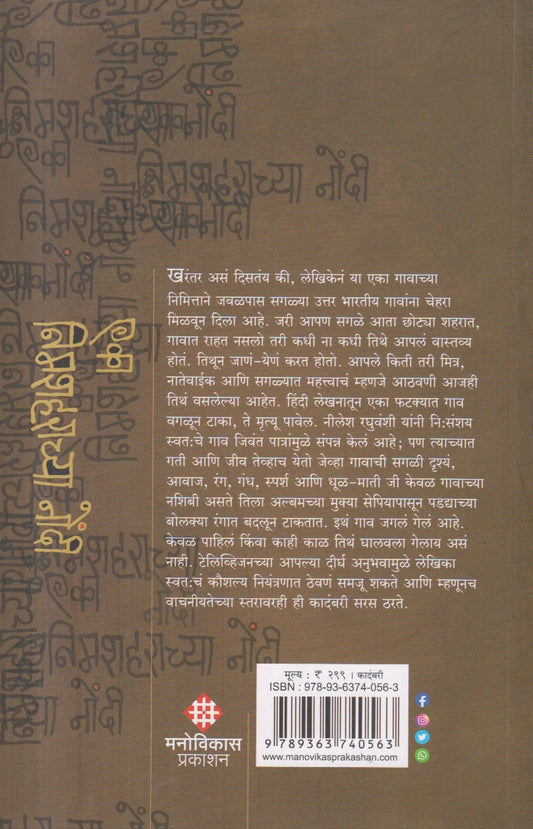 एका
निमशहराच्या नोंदी
खरंतर असं दिसतंय की, लेखिकेनं या एका गावाच्या
निमित्ताने जवळपास सगळ्या उत्तर भारतीय गावांना चेहरा
मिळवून दिला आहे. जरी आपण सगळे आता छोट्या शहरात,
गावात राहत नसलो तरी कधी ना कधी तिथे आपलं वास्तव्य
होतं. तिथून जाणं-येणं करत होतो. आपले किती तरी मित्र,
नातेवाईक आणि सगळ्यात महत्त्वाचं म्हणजे आठवणी आजही
तिथं वसलेल्या आहेत. हिंदी लेखनातून एका फटक्यात गाव
वगळून टाका, ते मृत्यू पावेल. नीलेश रघुवंशी यांनी नि:संशय
स्वत:चे गाव जिवंत पात्रांमुळे संपन्न केलं आहे; पण त्याच्यात
गती आणि जीव तेव्हाच येतो जेव्हा गावाची सगळी दृश्यं,
आवाज, रंग, गंध, स्पर्श आणि धूळ-माती जी केवळ गावाच्या
नशिबी असते तिला अल्बमच्या मुक्या सेपियापासून पडद्याच्या
बोलक्या रंगात बदलून टाकतात. इथं गाव जगलं गेलं आहे.
केवळ पाहिलं किंवा काही काळ तिथं घालवला गेलाय असं
नाही. टेलिव्हिजनच्या आपल्या दीर्घ अनुभवामुळे लेखिका
स्वत:चं कौशल्य नियंत्रणात ठेवणं समजू शकते आणि म्हणूनच
वाचनीयतेच्या स्तरावरही ही कादंबरी सरस ठरते.
मनोविकास
प्रकाशन
मूल्य : ₹ २९९ । कादंबरी
ISBN : 978-93-6374-056-3
9 789363 740563
www.manovikasprakashan.com